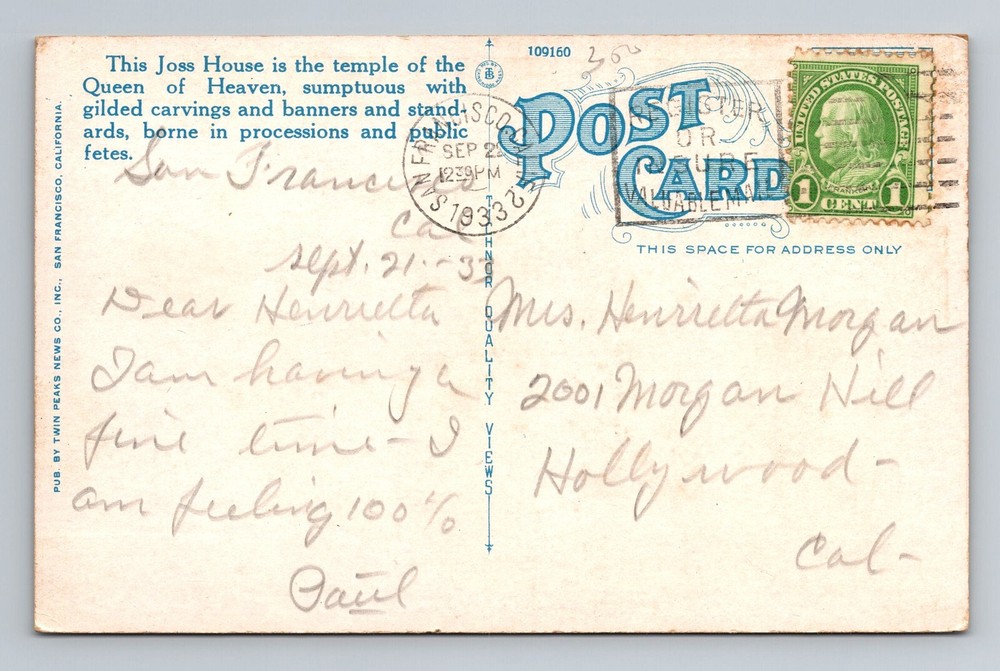 This Joss House is the temple of the
Queen of Heaven, sumptuous with
gilded carvings and banners and stand-
ards, borne in processions and public
fetes.
109160
POST
CARD
THIS SPACE FOR ADDRESS ONLY
UNITED STATES POSTAGE
FRANKLIN
1 CENT 1
SAN FRANCISCO
SEP 22
1239PM
1933
REGISTER
OR
INSURE
VALUABLE MAIL
San Francisco
Cal
Sept. 21.-33
Dear Henrietta
I am having a
fine time - I
am feeling 100%
Paul
Mrs. Henrietta Morgan
2001 Morgan Hill
Hollywood-
Cal-
PUB. BY TWIN PEAKS NEWS CO., INC., SAN FRANCISCO, CALIFORNIA.
QUALITY VIEWS